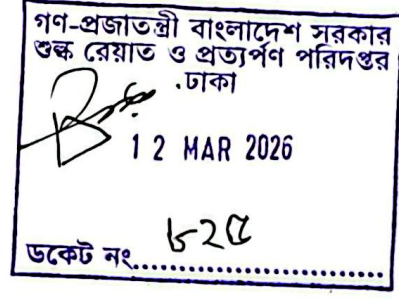 গণ-প্রজাতন্ত্রী বাংলাদেশ সরকার
শুল্ক রেয়াত ও প্রত্যর্পণ পরিদপ্তর
ঢাকা
12 MAR 2026
৮২৫
ডকেট নং..............................